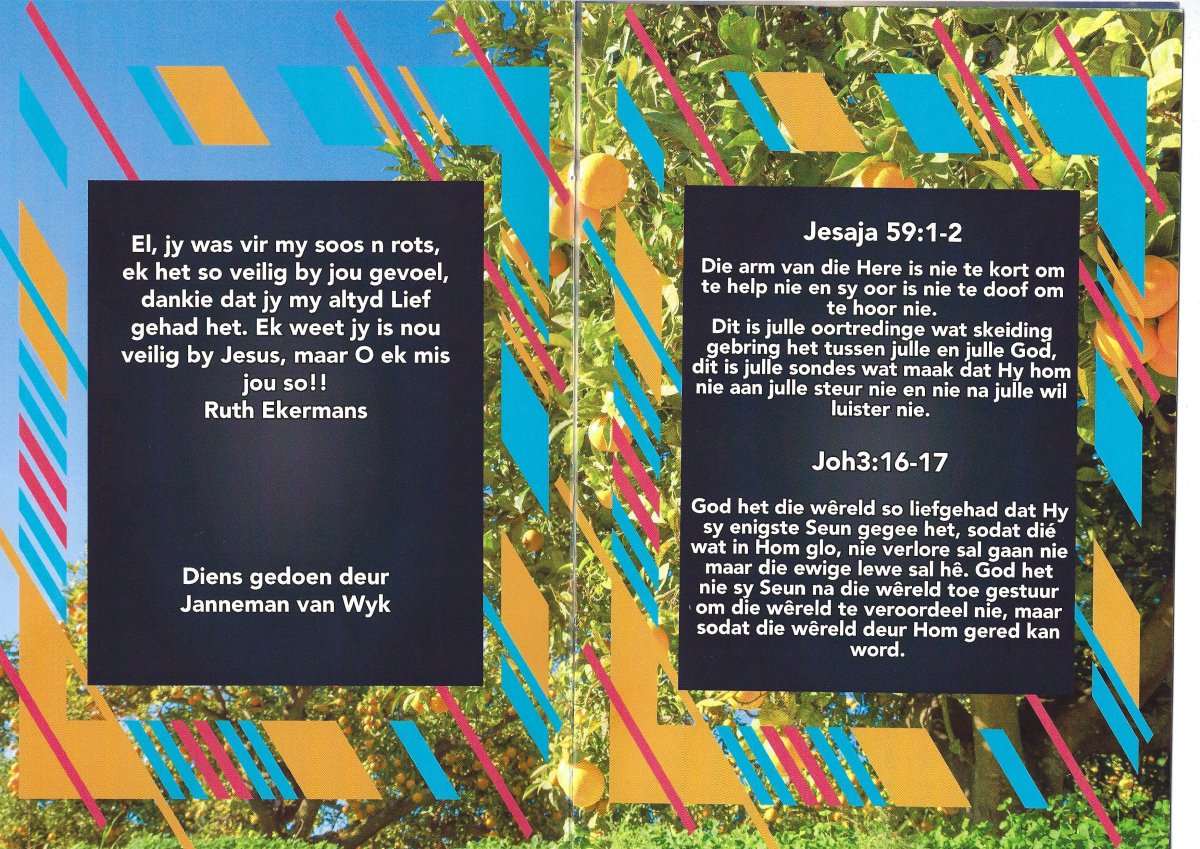 El, jy was vir my soos n rots,
ek het so veilig by jou gevoel,
dankie dat jy my altyd Lief
gehad het. Ek weet jy is nou
veilig by Jesus, maar O ek mis
jou so!!
Ruth Ekermans
Diens gedoen deur
Janneman van Wyk
Jesaja 59:1-2
Die arm van die Here is nie te kort om
te help nie en sy oor is nie te doof om
te hoor nie.
Dit is julle oortredinge wat skeiding
gebring het tussen julle en julle God,
dit is julle sondes wat maak dat Hy hom
nie aan julle steur nie en nie na julle wil
luister nie.
Joh3:16-17
God het die wêreld so liefgehad dat Hy
sy enigste Seun gegee het, sodat dié
wat in Hom glo, nie verlore sal gaan nie
maar die ewige lewe sal hê. God het
nie sy Seun na die wêreld toe gestuur
om die wêreld te veroordeel nie, maar
sodat die wêreld deur Hom gered kan
word.